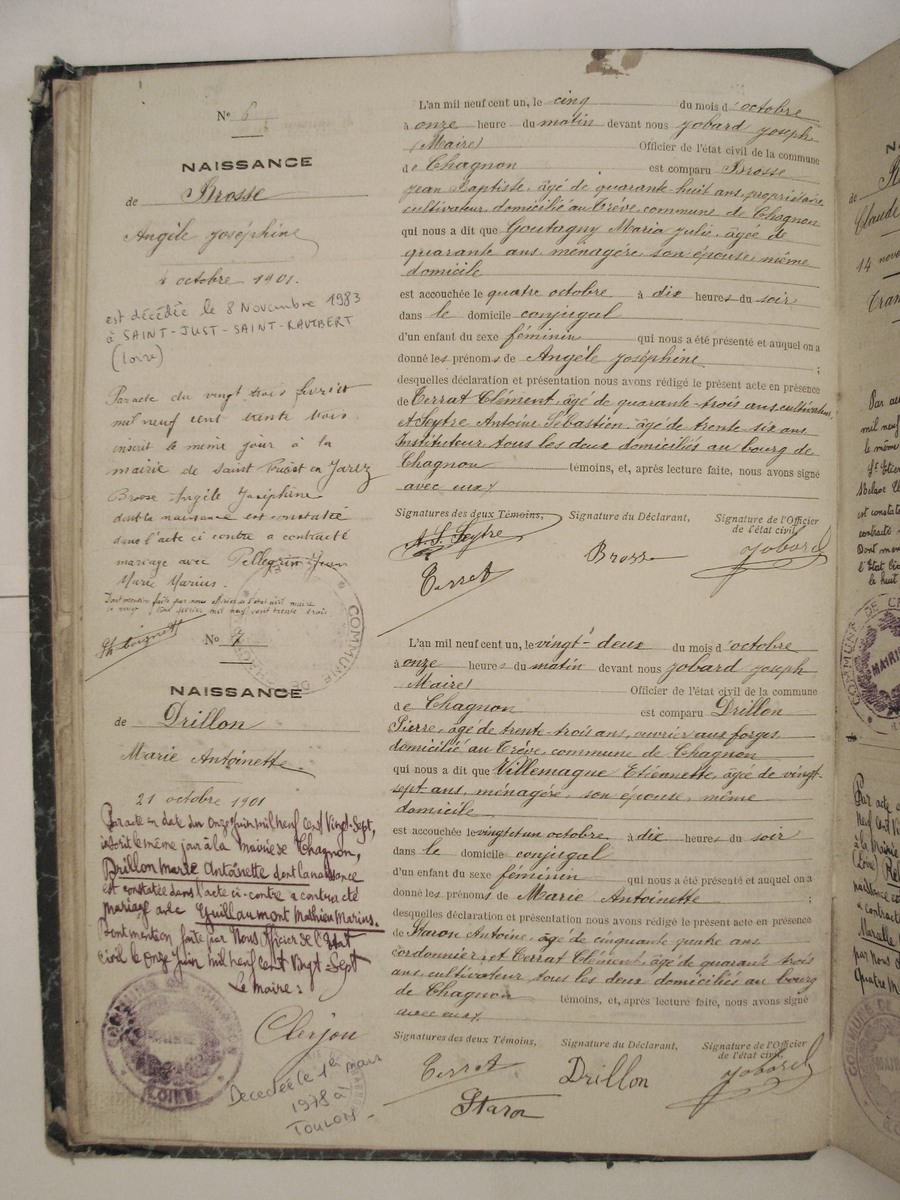 N° 6
NAISSANCE
de Brosse
Angèle Joséphine
4 octobre 1901.
est décédée le 8 Novembre 1983
à SAINT-JUST-SAINT-RAMBERT
(Loire)
Par acte du vingt trois février
mil neuf cent trente trois
inscrit le même jour à la
mairie de Saint Priest en Jarez
Brosse Angèle Joséphine
dont la naissance est constatée
dans l'acte ci contre a contracté
mariage avec Pellegrin Jean
Marie Marius.
L'an mil neuf cent un, le cinq du mois d'octobre
à onze heure du matin devant nous Jobard Joseph
(Maire) Officier de l'état civil de la commune
de Chagnon est comparu Brosse
Jean Baptiste, âgé de quarante huit ans, propriétaire
cultivateur, domicilié au Crêve, commune de Chagnon
qui nous a dit que Goutagny Maria Julie, âgée de
quarante ans, ménagère, son épouse, même
domicile
est accouchée le quatre octobre à dix heures du soir
dans le domicile conjugal
d'un enfant du sexe féminin qui nous a été présenté et auquel on a
donné les prénoms de Angèle Joséphine ;
desquelles déclaration et présentation nous avons rédigé le présent acte en présence
de Terrat Clément, âgé de quarante-trois ans, cultivateur,
et Seytre Antoine Sébastien, âgé de trente-six ans
Instituteur tous les deux domiciliés au bourg de
Chagnon témoins, et, après lecture faite, nous avons signé
avec eux
Signatures des deux Témoins, Signature du Déclarant, Signature de l'Officier
de l'état civil,
A. S. Seytre Brosse Jobard
Terrat
N° 7
NAISSANCE
de Drillon
Marie Antoinette
21 octobre 1901
Par acte en date du Onze Juin mil neuf cent Vingt-Sept,
inscrit le même jour à la Mairie de Chagnon,
Drillon Marie Antoinette dont la naissance
est constatée dans l'acte ci-contre a contracté
mariage avec Guillaumont Mathieu Marius.
Dont mention faite par Nous Officier de l'Etat
civil le Onze Juin mil neuf cent Vingt Sept
Le Maire :
Clerjon
LOIRE
Décédée le 1er mars
1978 à
TOULON -
L'an mil neuf cent un, le vingt-deux du mois d'octobre
à onze heures du matin devant nous Jobard Joseph
(Maire) Officier de l'état civil de la commune
de Chagnon est comparu Drillon
Pierre, âgé de trente-trois ans, ouvrier aux forges
domicilié au Crêve, commune de Chagnon
qui nous a dit que Villemagne Etiennette, âgée de vingt-
sept ans, ménagère, son épouse, même
domicile
est accouchée le vingt et un octobre à dix heures du soir
dans le domicile conjugal
d'un enfant du sexe féminin qui nous a été présenté et auquel on a
donné les prénoms de Marie Antoinette ;
desquelles déclaration et présentation nous avons rédigé le présent acte en présence
de Staron Antoine, âgé de cinquante quatre ans
cordonnier, et Terrat Clément, âgé de quarante trois
ans, cultivateur tous les deux domiciliés au bourg
de Chagnon témoins, et, après lecture faite, nous avons signé
avec eux.
Signatures des deux Témoins, Signature du Déclarant, Signature de l'Officier
de l'état civil,
Terrat Drillon Jobard
Staron